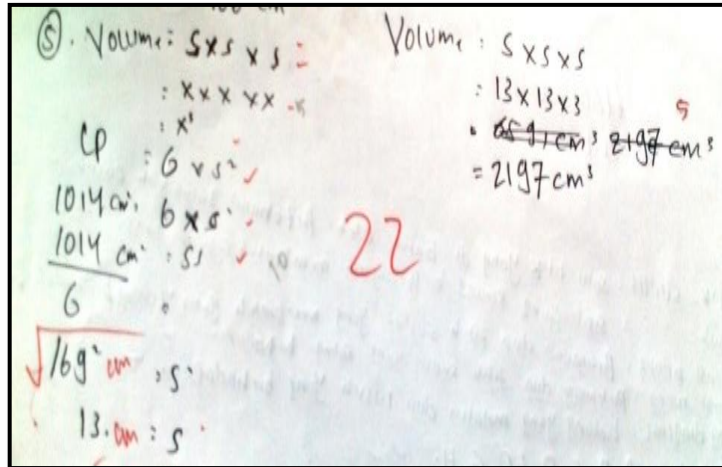 ⑤. Volume: s x s x s
: x x x x x
: x³
LP = 6 x s²
1014 cm² 6 x s²
1014 cm² : s²
6
√169² cm : s²
13 cm : s
22
Volume : s x s x s
: 13 x 13 x 3
5
2197 cm³
= 2197 cm³